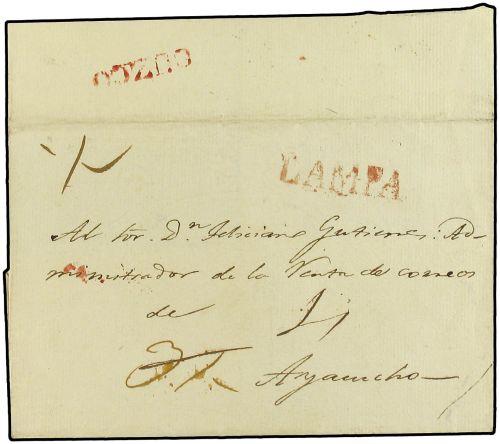 CUZCO
LAMPA
Al Sor. Dn. Feliciano Gutierres: Ad-
ministrador de la Venta de correos
de
Ayacucho